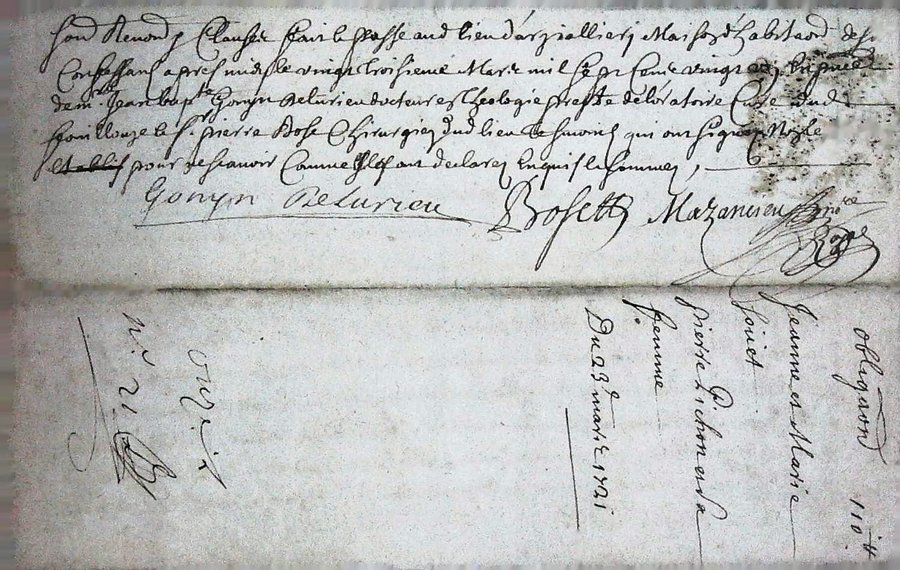 Renonda Clauses fait et passé aud lieu d'argialliery Maison d'habitaon des
Confessans apres midy le vingt troisieme Mars mil sept cens vingt presence
de mr Jean bapte Gonyn Delurieu docteur es theologie prestre de l'oratoire Curé dud
fouillouze le sr pierre Bose Chirurgien dud lieu tesmoins qui ont signé
pour ne scavoir Comme ils ont declaré Enquis et sommez,
Gonyn Delurieu Bosett Mazancieu
Obligaon 110 tt
Jeanne et Marie
fouet
pierre pichon et sa
femme
Du 23d mars 1721
onze
n.o 21